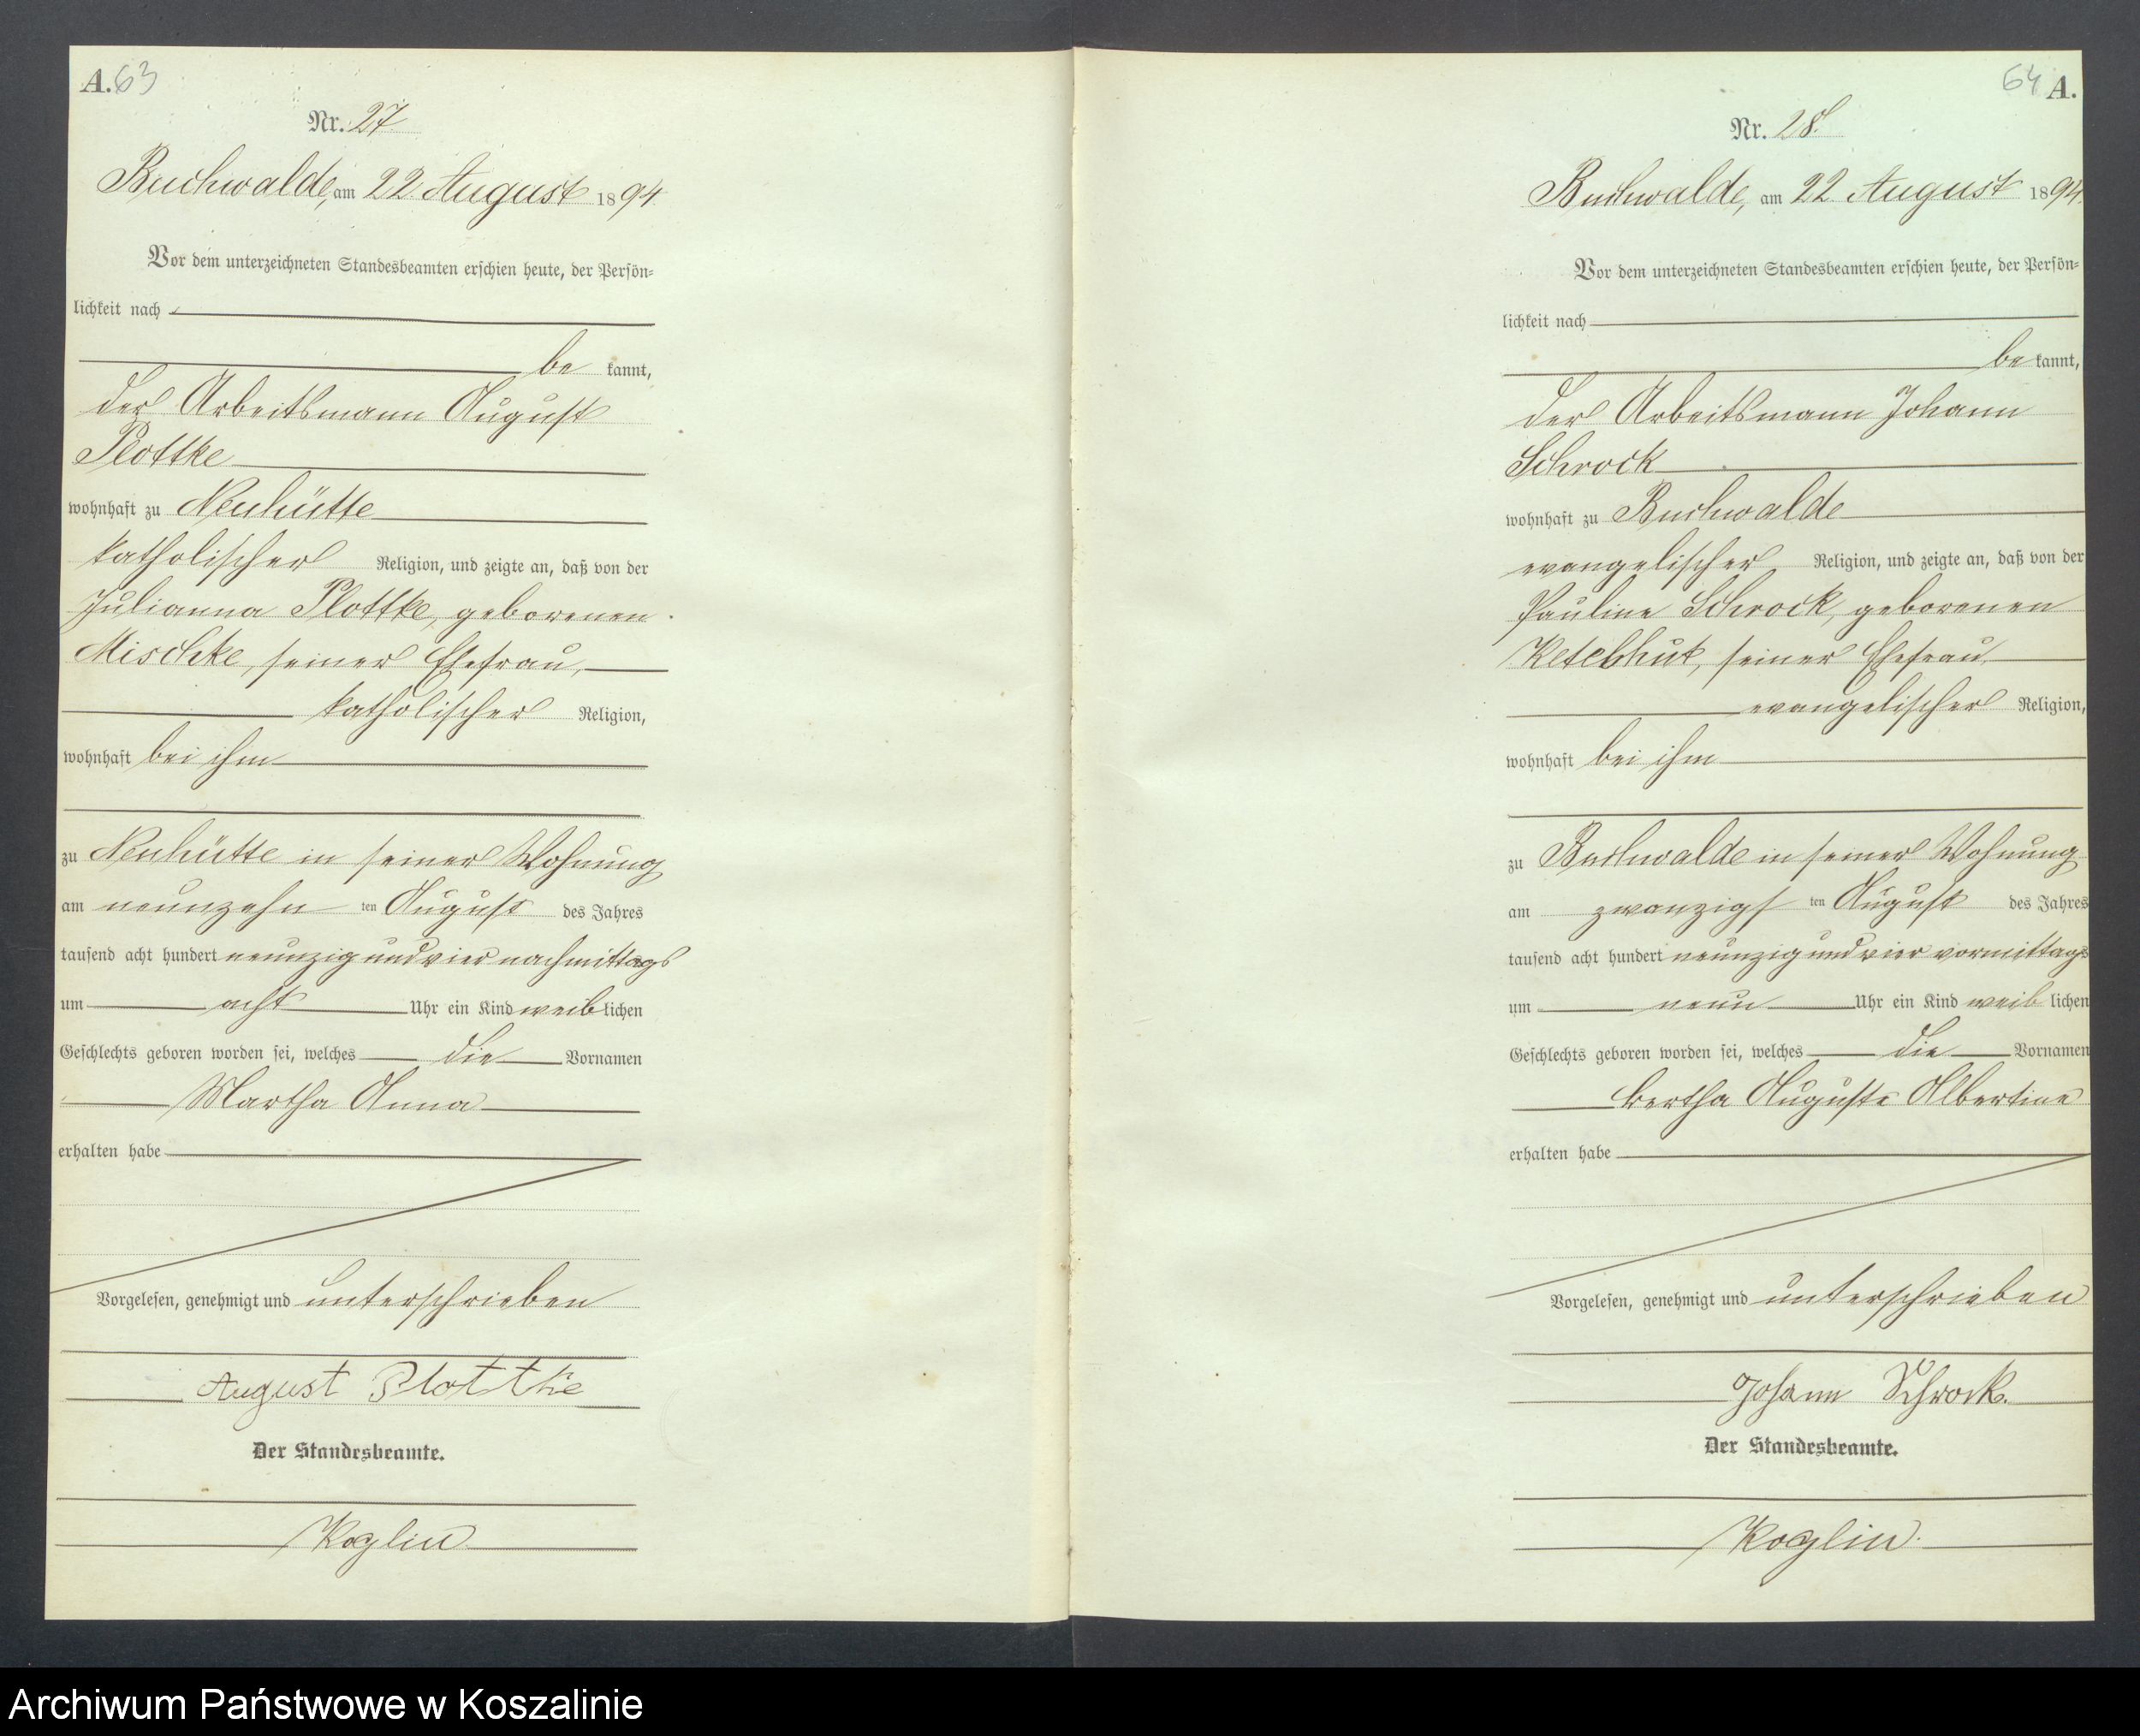 A. 63
Nr. 27
Buchwalde, am 22. August 1894
Vor dem unterzeichneten Standesbeamten erschien heute, der Persön-
lichkeit nach
be kannt,
der Arbeitsmann August
Plottke
wohnhaft zu Neuhütte
katholischer Religion, und zeigte an, daß von der
Julianna Plottke, geborenen
Mischke, seiner Ehefrau,
katholischer Religion,
wohnhaft bei ihm
zu Neuhütte in seiner Wohnung
am neunzehn ten August des Jahres
tausend acht hundert neunzig und vier nachmittags
um acht Uhr ein Kind weib lichen
Geschlechts geboren worden sei, welches die Vornamen
Martha Anna
erhalten habe
Vorgelesen, genehmigt und unterschrieben
August Plottke
Der Standesbeamte.
Koglin
64 A.
Nr. 28.
Buchwalde, am 22. August 1894.
Vor dem unterzeichneten Standesbeamten erschien heute, der Persön-
lichkeit nach
be kannt,
der Arbeitsmann Johann
Schrock
wohnhaft zu Buchwalde
evangelischer Religion, und zeigte an, daß von der
Pauline Schrock, geborenen
seiner Ehefrau,
evangelischer Religion,
wohnhaft bei ihm
zu Buchwalde in seiner Wohnung
am zwanzigs ten August des Jahres
tausend acht hundert neunzig und vier vormittags
um neun Uhr ein Kind weib lichen
Geschlechts geboren worden sei, welches die Vornamen
Bertha Auguste Albertine
erhalten habe
Vorgelesen, genehmigt und unterschrieben
Johann Schrock.
Der Standesbeamte.
Koglin.
Archiwum Państwowe w Koszalinie